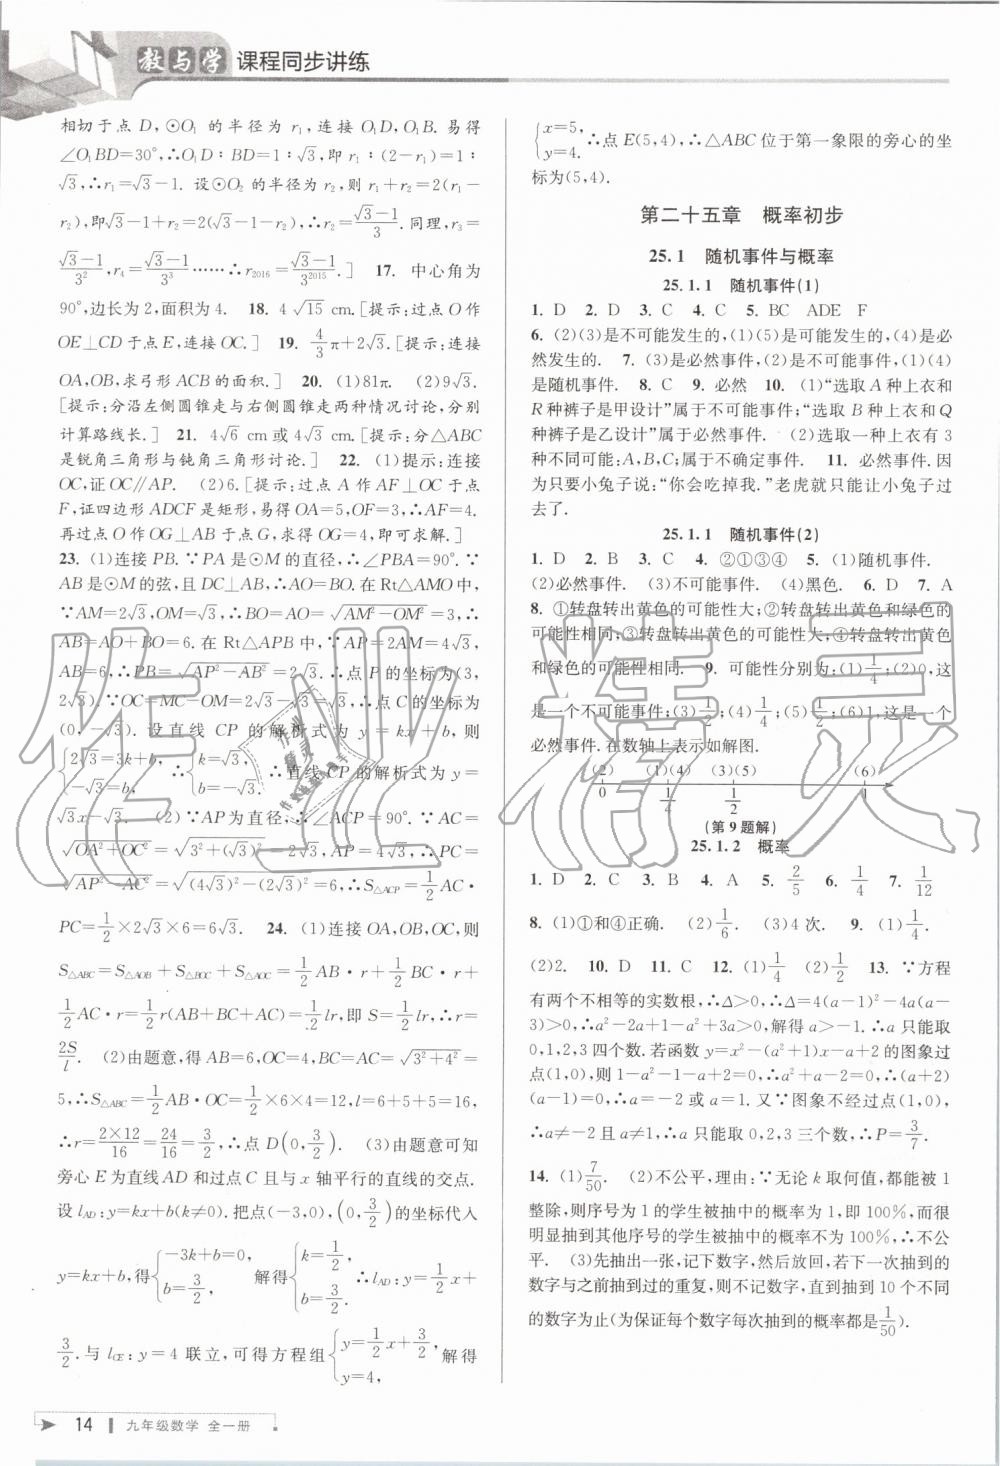 教与学 课程同步讲练
相切于点 D,⊙O₁ 的半径为 r₁,连接 O₁D,O₁B. 易得
∠O₁BD=30°,∴O₁D∶BD=1∶√3,即 r₁∶(2-r₁)=1∶
√3,∴r₁=√3-1. 设⊙O₂ 的半径为 r₂,则 r₁+r₂=2(r₁-
r₂),即√3-1+r₂=2(√3-1-r₂),∴r₂=(√3-1)/3.同理,r₃=
(√3-1)/3²,r₄=(√3-1)/3³……∴r₂₀₁₆=(√3-1)/3²⁰¹⁵.] 17. 中心角为
90°,边长为 2,面积为 4. 18. 4√15 cm.[提示:过点 O 作
OE⊥CD 于点 E,连接 OC.] 19. 4/3π+2√3.[提示:连接
OA,OB,求弓形 ACB 的面积.] 20. (1)81π. (2)9√3.
[提示:分沿左侧圆锥走与右侧圆锥走两种情况讨论,分别
计算路线长.] 21. 4√6 cm 或 4√3 cm.[提示:分△ABC
是锐角三角形与钝角三角形讨论.] 22. (1)提示:连接
OC,证 OC∥AP. (2)6.[提示:过点 A 作 AF⊥OC 于点
F,证四边形 ADCF 是矩形,易得 OA=5,OF=3,∴AF=4.
再过点 O 作 OG⊥AB 于点 G,求得 OG=4,即可求解.]
23. (1)连接 PB. ∵PA 是⊙M 的直径,∴∠PBA=90°. ∵
AB 是⊙M 的弦,且 DC⊥AB,∴AO=BO. 在 Rt△AMO 中,
∵AM=2√3,OM=√3,∴BO=AO=√(AM²-OM²)=3,∴
AB=AO+BO=6. 在 Rt△APB 中,∵AP=2AM=4√3,
AB=6,∴PB=√(AP²-AB²)=2√3.∴点 P 的坐标为(3,
2√3). ∵OC=MC-OM=2√3-√3=√3,∴点 C 的坐标为
(0,-√3). 设直线 CP 的解析式为 y=kx+b,则
{2√3=3k+b, -√3=b, ∴{k=√3, b=-√3. ∴直线 CP 的解析式为 y=
√3x-√3. (2)∵AP 为直径,∴∠ACP=90°. ∵AC=
√(OA²+OC²)=√(3²+(√3)²)=2√3,AP=4√3,∴PC=
√(AP²-AC²)=√((4√3)²-(2√3)²)=6,∴S△ACP=1/2AC·
PC=1/2×2√3×6=6√3. 24. (1)连接 OA,OB,OC,则
S△ABC=S△AOB+S△BOC+S△AOC=1/2AB·r+1/2BC·r+
1/2AC·r=1/2r(AB+BC+AC)=1/2lr,即 S=1/2lr,∴r=
2S/l. (2)由题意,得 AB=6,OC=4,BC=AC=√(3²+4²)=
5,∴S△ABC=1/2AB·OC=1/2×6×4=12,l=6+5+5=16,
∴r=(2×12)/16=24/16=3/2,∴点 D(0,3/2). (3)由题意可知
旁心 E 为直线 AD 和过点 C 且与 x 轴平行的直线的交点.
设 lAD:y=kx+b(k≠0). 把点(-3,0),(0,3/2)的坐标代入
y=kx+b,得{-3k+b=0, b=3/2, 解得{k=1/2, b=3/2. ∴lAD:y=1/2x+
3/2.与 lCE:y=4 联立,可得方程组{y=1/2x+3/2, y=4, 解得
{x=5, y=4. ∴点 E(5,4),∴△ABC 位于第一象限的旁心的坐
标为(5,4).
第二十五章 概率初步
25.1 随机事件与概率
25.1.1 随机事件(1)
1. D 2. D 3. C 4. C 5. BC ADE F
6. (2)(3)是不可能发生的,(1)(5)是可能发生的,(4)是必
然发生的. 7. (3)是必然事件,(2)是不可能事件,(1)(4)
是随机事件. 8. C 9. 必然 10. (1)“选取 A 种上衣和
R 种裤子是甲设计”属于不可能事件;“选取 B 种上衣和 Q
种裤子是乙设计”属于必然事件. (2)选取一种上衣有 3
种不同可能:A,B,C;属于不确定事件. 11. 必然事件.因
为只要小兔子说:“你会吃掉我.”老虎就只能让小兔子过
去了.
25.1.1 随机事件(2)
1. D 2. B 3. C 4. ②①③④ 5. (1)随机事件.
(2)必然事件. (3)不可能事件. (4)黑色. 6. D 7. A
8. ①转盘转出黄色的可能性大;②转盘转出黄色和绿色的
可能性相同;③转盘转出黄色的可能性大;④转盘转出黄色
和绿色的可能性相同. 9. 可能性分别为:(1)1/4;(2)0,这
是一个不可能事件;(3)1/2;(4)1/4;(5)1/2;(6)1,这是一个
必然事件. 在数轴上表示如解图.
(2) (1)(4) (3)(5) (6)
0 1/4 1/2 1
(第 9 题解)
25.1.2 概率
1. D 2. C 3. B 4. A 5. 2/5 6. 1/4 7. 1/12
8. (1)①和④正确. (2)1/6. (3)4 次. 9. (1)1/4.
(2)2. 10. D 11. C 12. (1)1/4 (2)1/2 13. ∵方程
有两个不相等的实数根,∴Δ>0,∴Δ=4(a-1)²-4a(a-
3)>0,∴a²-2a+1-a²+3a>0,解得 a>-1.∴a 只能取
0,1,2,3 四个数. 若函数 y=x²-(a²+1)x-a+2 的图象过
点(1,0),则 1-a²-1-a+2=0,∴a²+a-2=0,∴(a+2)
(a-1)=0,∴a=-2 或 a=1. 又∵图象不经过点(1,0),
∴a≠-2 且 a≠1,∴a 只能取 0,2,3 三个数,∴P=3/7.
14. (1)7/50. (2)不公平,理由:∵无论 k 取何值,都能被 1
整除,则序号为 1 的学生被抽中的概率为 1,即 100%,而很
明显抽到其他序号的学生被抽中的概率不为 100%,∴不公
平. (3)先抽出一张,记下数字,然后放回,若下一次抽到的
数字与之前抽到过的重复,则不记数字,直到抽到 10 个不同
的数字为止(为保证每个数字每次抽到的概率都是1/50).
14 九年级数学 全一册
作业精灵